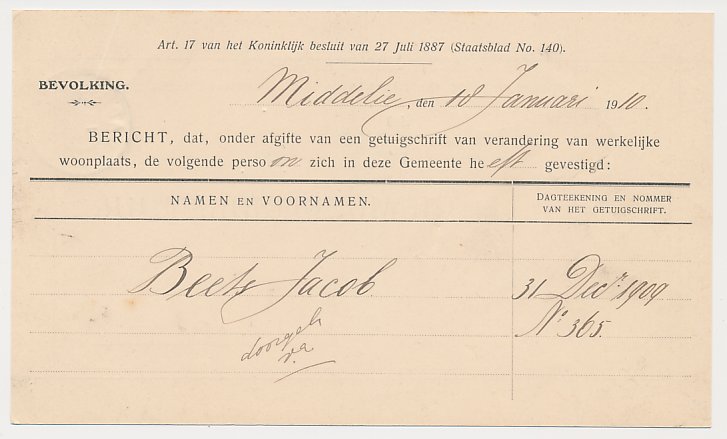 Art. 17 van het Koninklijk besluit van 27 Juli 1887 (Staatsblad No. 140).
BEVOLKING.
Middelie, den 10 Januari 1910.
BERICHT, dat, onder afgifte van een getuigschrift van verandering van werkelijke
woonplaats, de volgende persoon zich in deze Gemeente heeft gevestigd:
NAMEN EN VOORNAMEN.
DAGTEEKENING EN NOMMER
VAN HET GETUIGSCHRIFT.
Beets Jacob
31 Decr 1909
No 365.